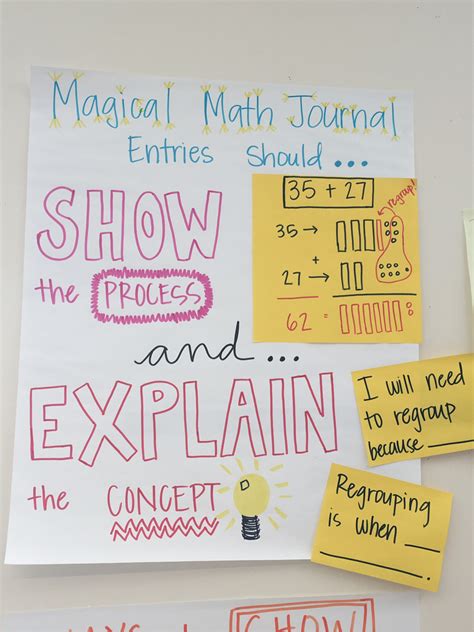 Magical Math Journal
Entries Should...
SHOW
the PROCESS
35 + 27
regroup!
35 →
+
27 →
62 =
and...
EXPLAIN
the CONCEPT
I will need
to regroup
because ____
Regrouping
is when ___
____.
SHOW